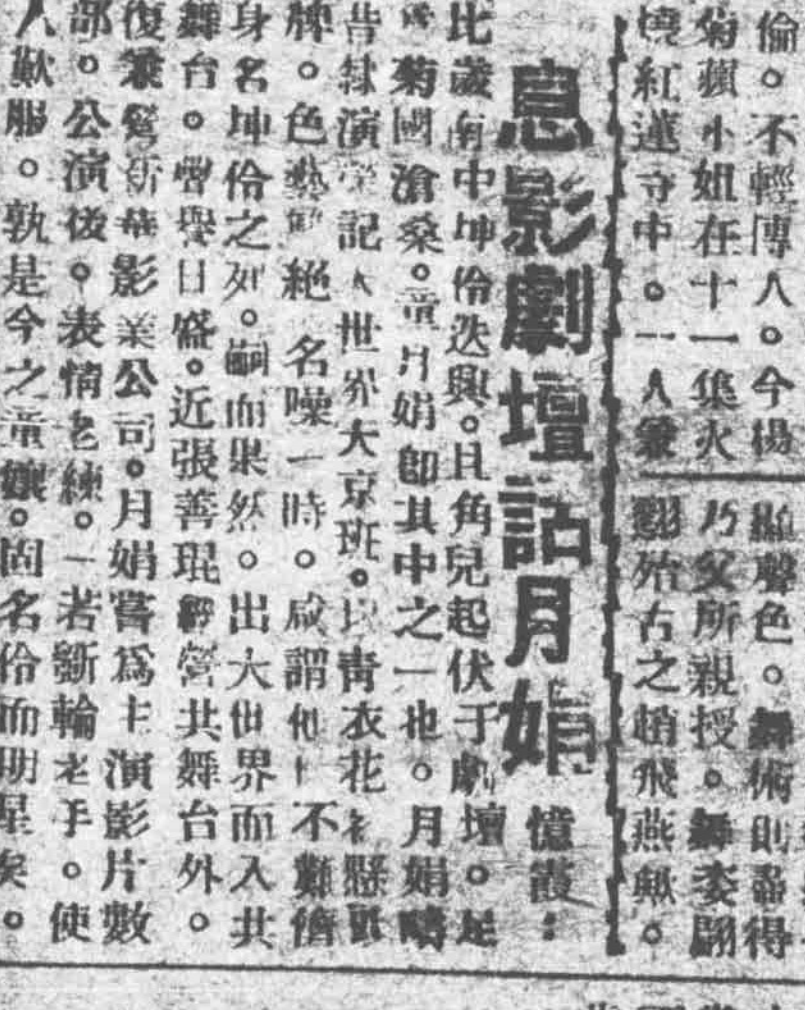 倫。不輕傳人。今楊
菊蘋小姐在十一集火
燒紅蓮寺中。一人兼
顯聲色。舞術則盡得
乃父所親授。舞姿翩
翩殆古之趙飛燕歟。
息影劇壇話月娟
憶霞：
比歲南中坤伶迭興。且角兒起伏于劇壇。是
菊國滄桑。童月娟即其中之一也。月娟
昔隸演榮記大世界大京班。以青衣花衫懸
牌。色藝 絕 名噪一時。咸謂他日不難儕
身名坤伶之列。嗣而果然。出大世界而入共
舞台。譽日盛。近張善琨經營共舞台外。
復兼營新華影業公司。月娟嘗爲主演影片數
部。公演後。表情老練。一若斲輪老手。使
人歎服。孰是今之童孃。固名伶而明星矣。